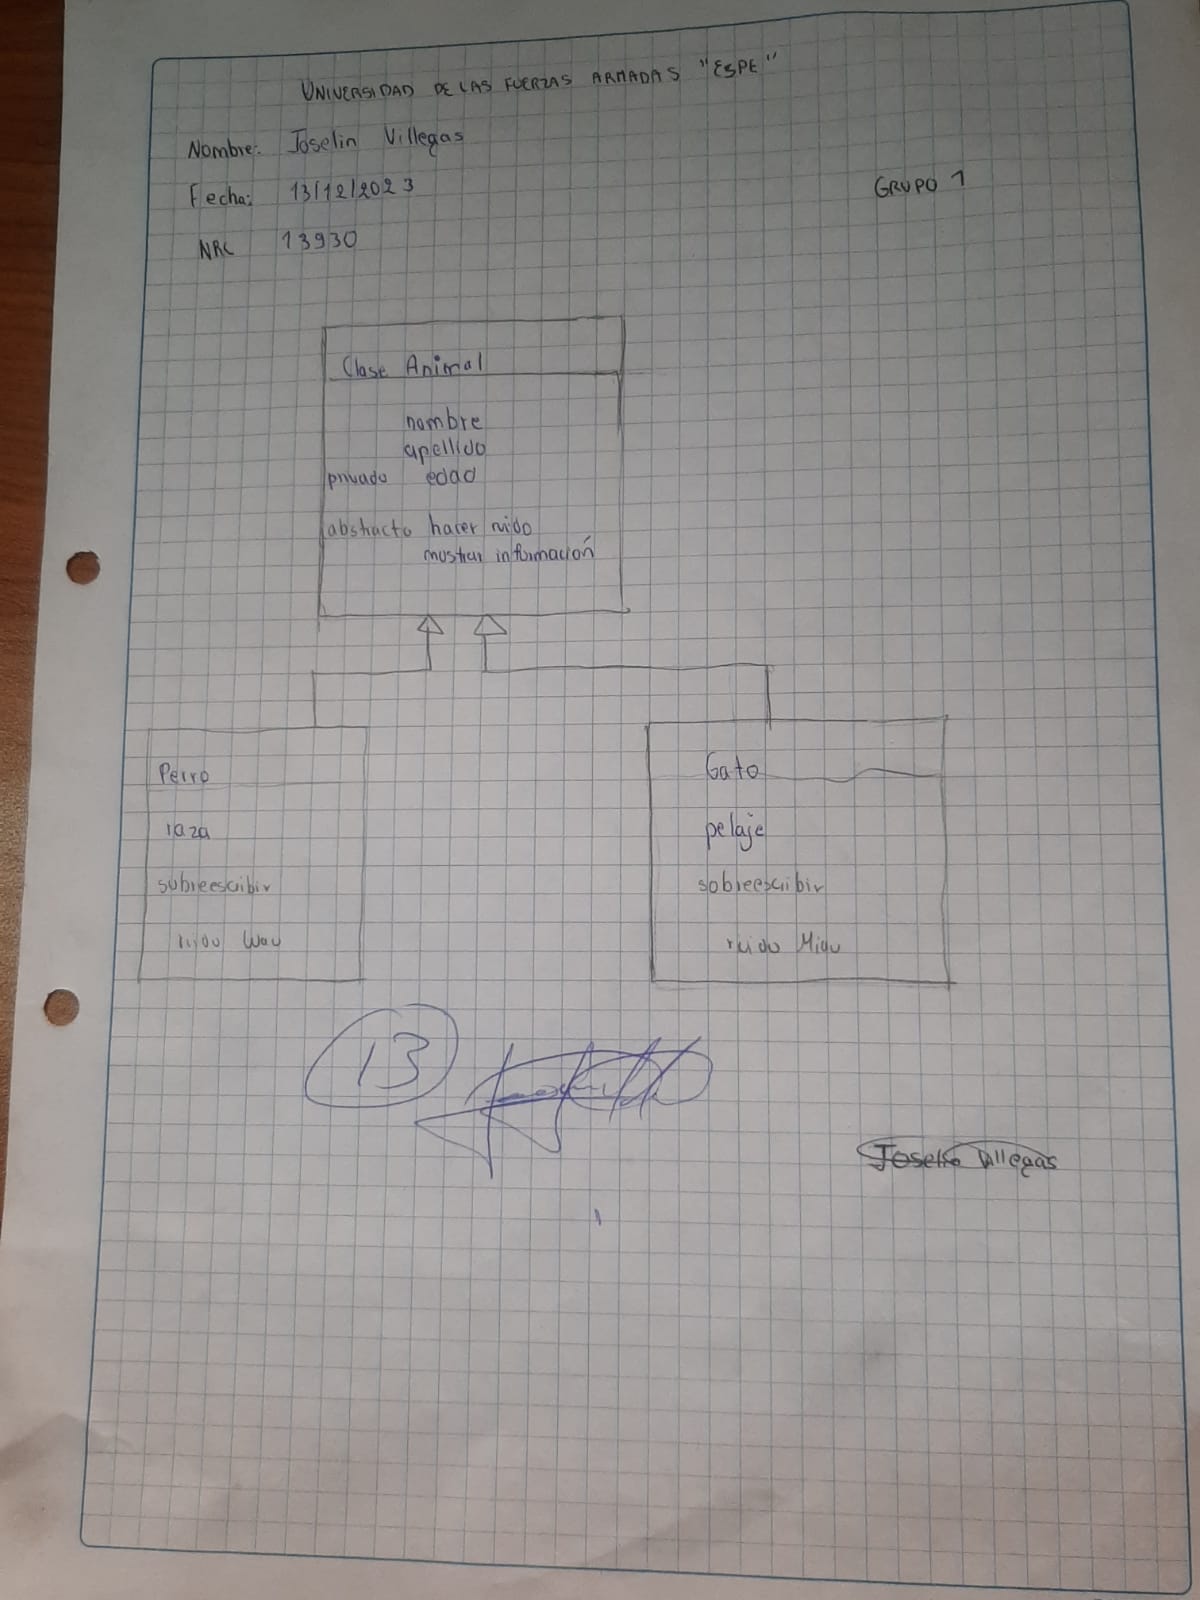 UNIVERSIDAD DE LAS FUERZAS ARMADAS "ESPE"
Nombre: Joselin Villegas
Fecha: 13/12/2023
GRUPO 1
NRC 13930
Clase Animal
nombre
apellido
privado edad
abstracto hacer ruido
mostrar información
Perro
raza
sobreescribir
ruido Wau
Gato
pelaje
sobreescribir
ruido Miau
13
Joselin Villegas